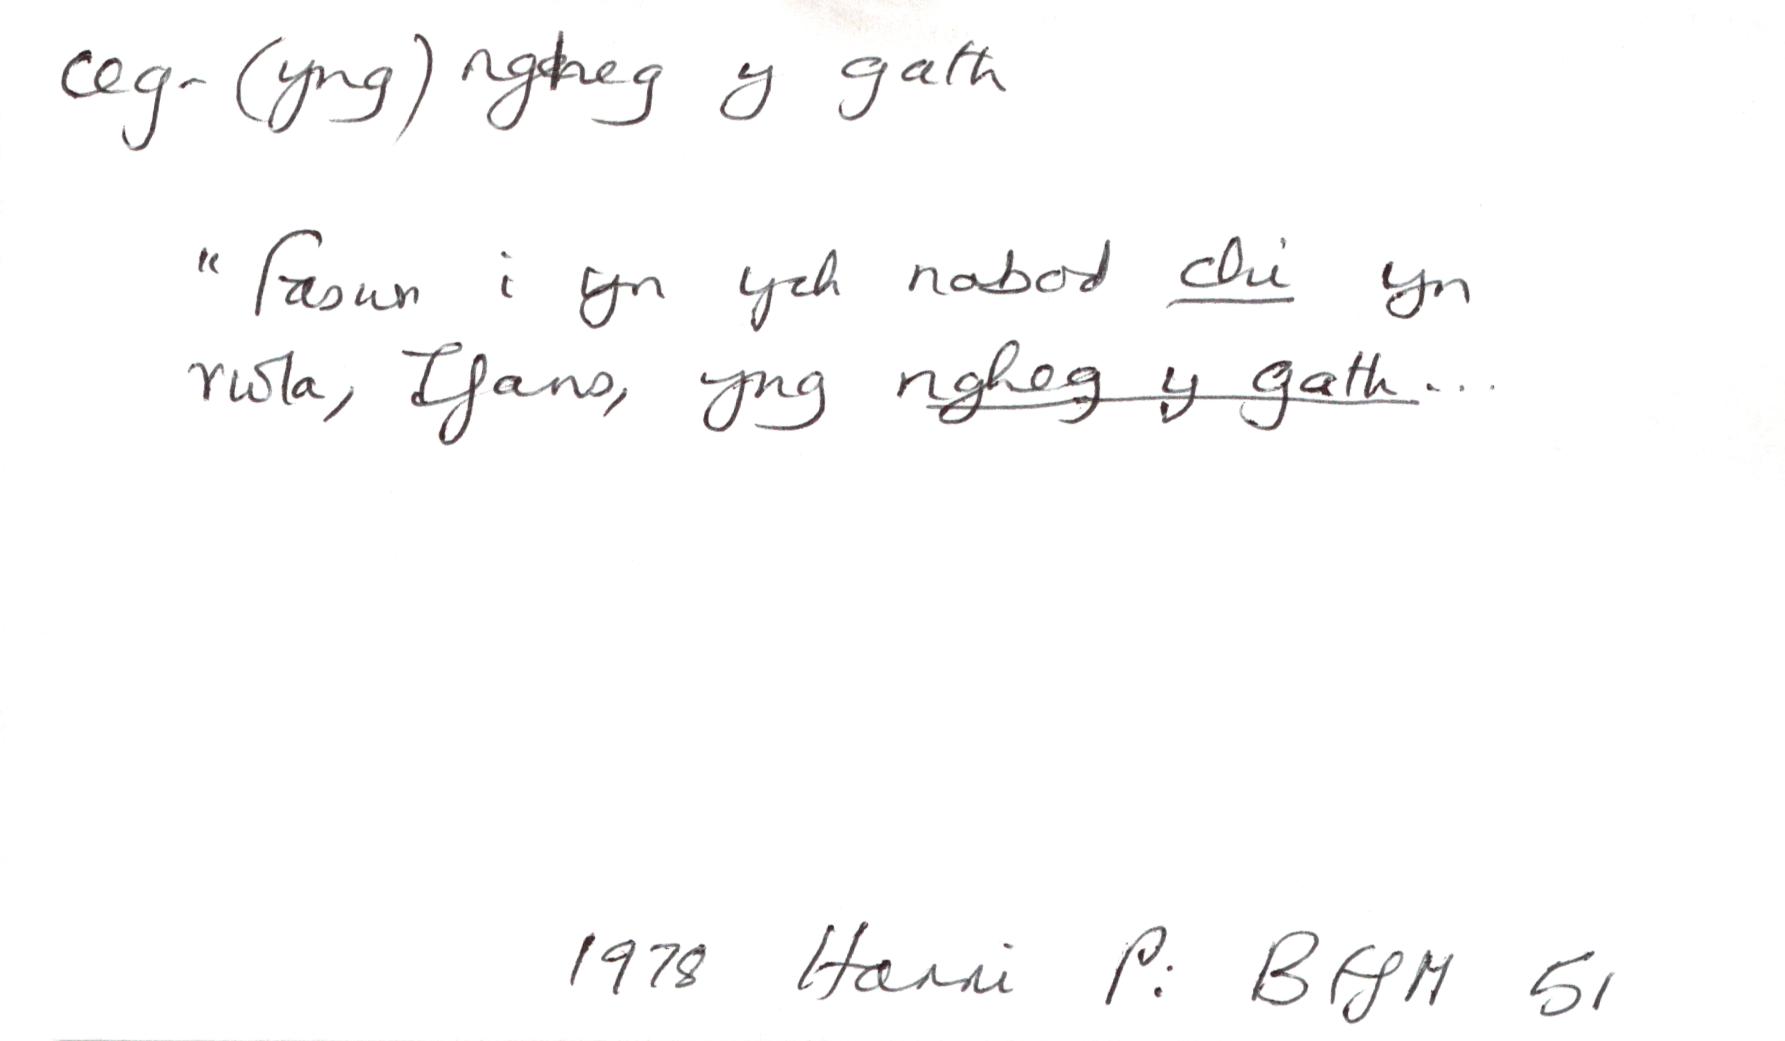 ceg - (yng) ngheg y gath
"Faswn i yn ych nabod chi yn
rwla, Ifans, yng ngheg y gath ...
1978 Harri P: BFfM 51